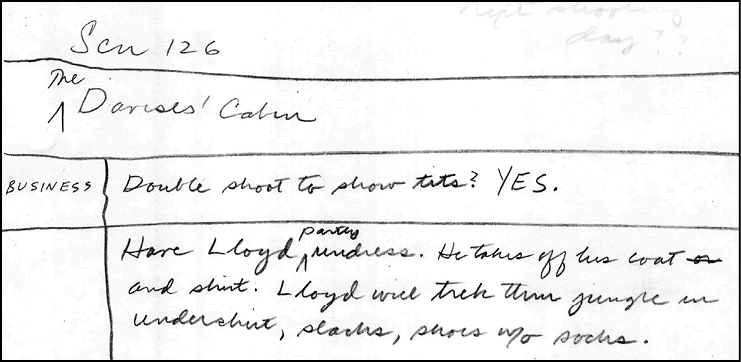 shooting
day??
Scn 126
The
Davises' Cabin
BUSINESS Double shoot to show tits? YES.
partly
Have Lloyd undress. He takes off his coat or
and shirt. Lloyd will trek thru jungle in
undershirt, slacks, shoes w/o socks.